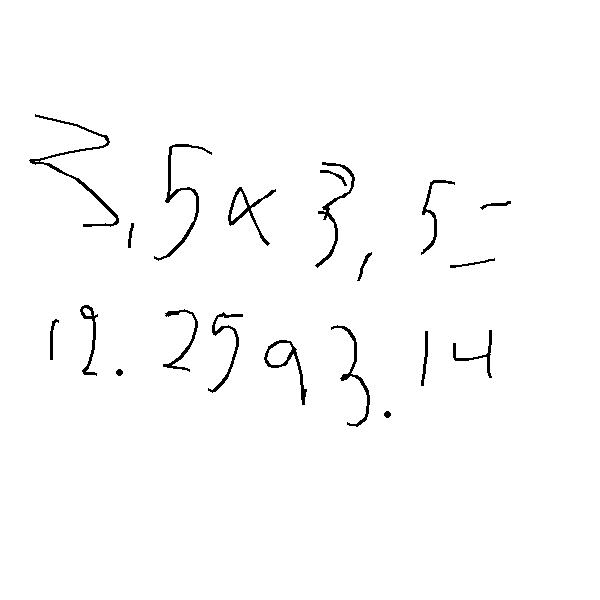 3,5×3,5=
12.2593.14